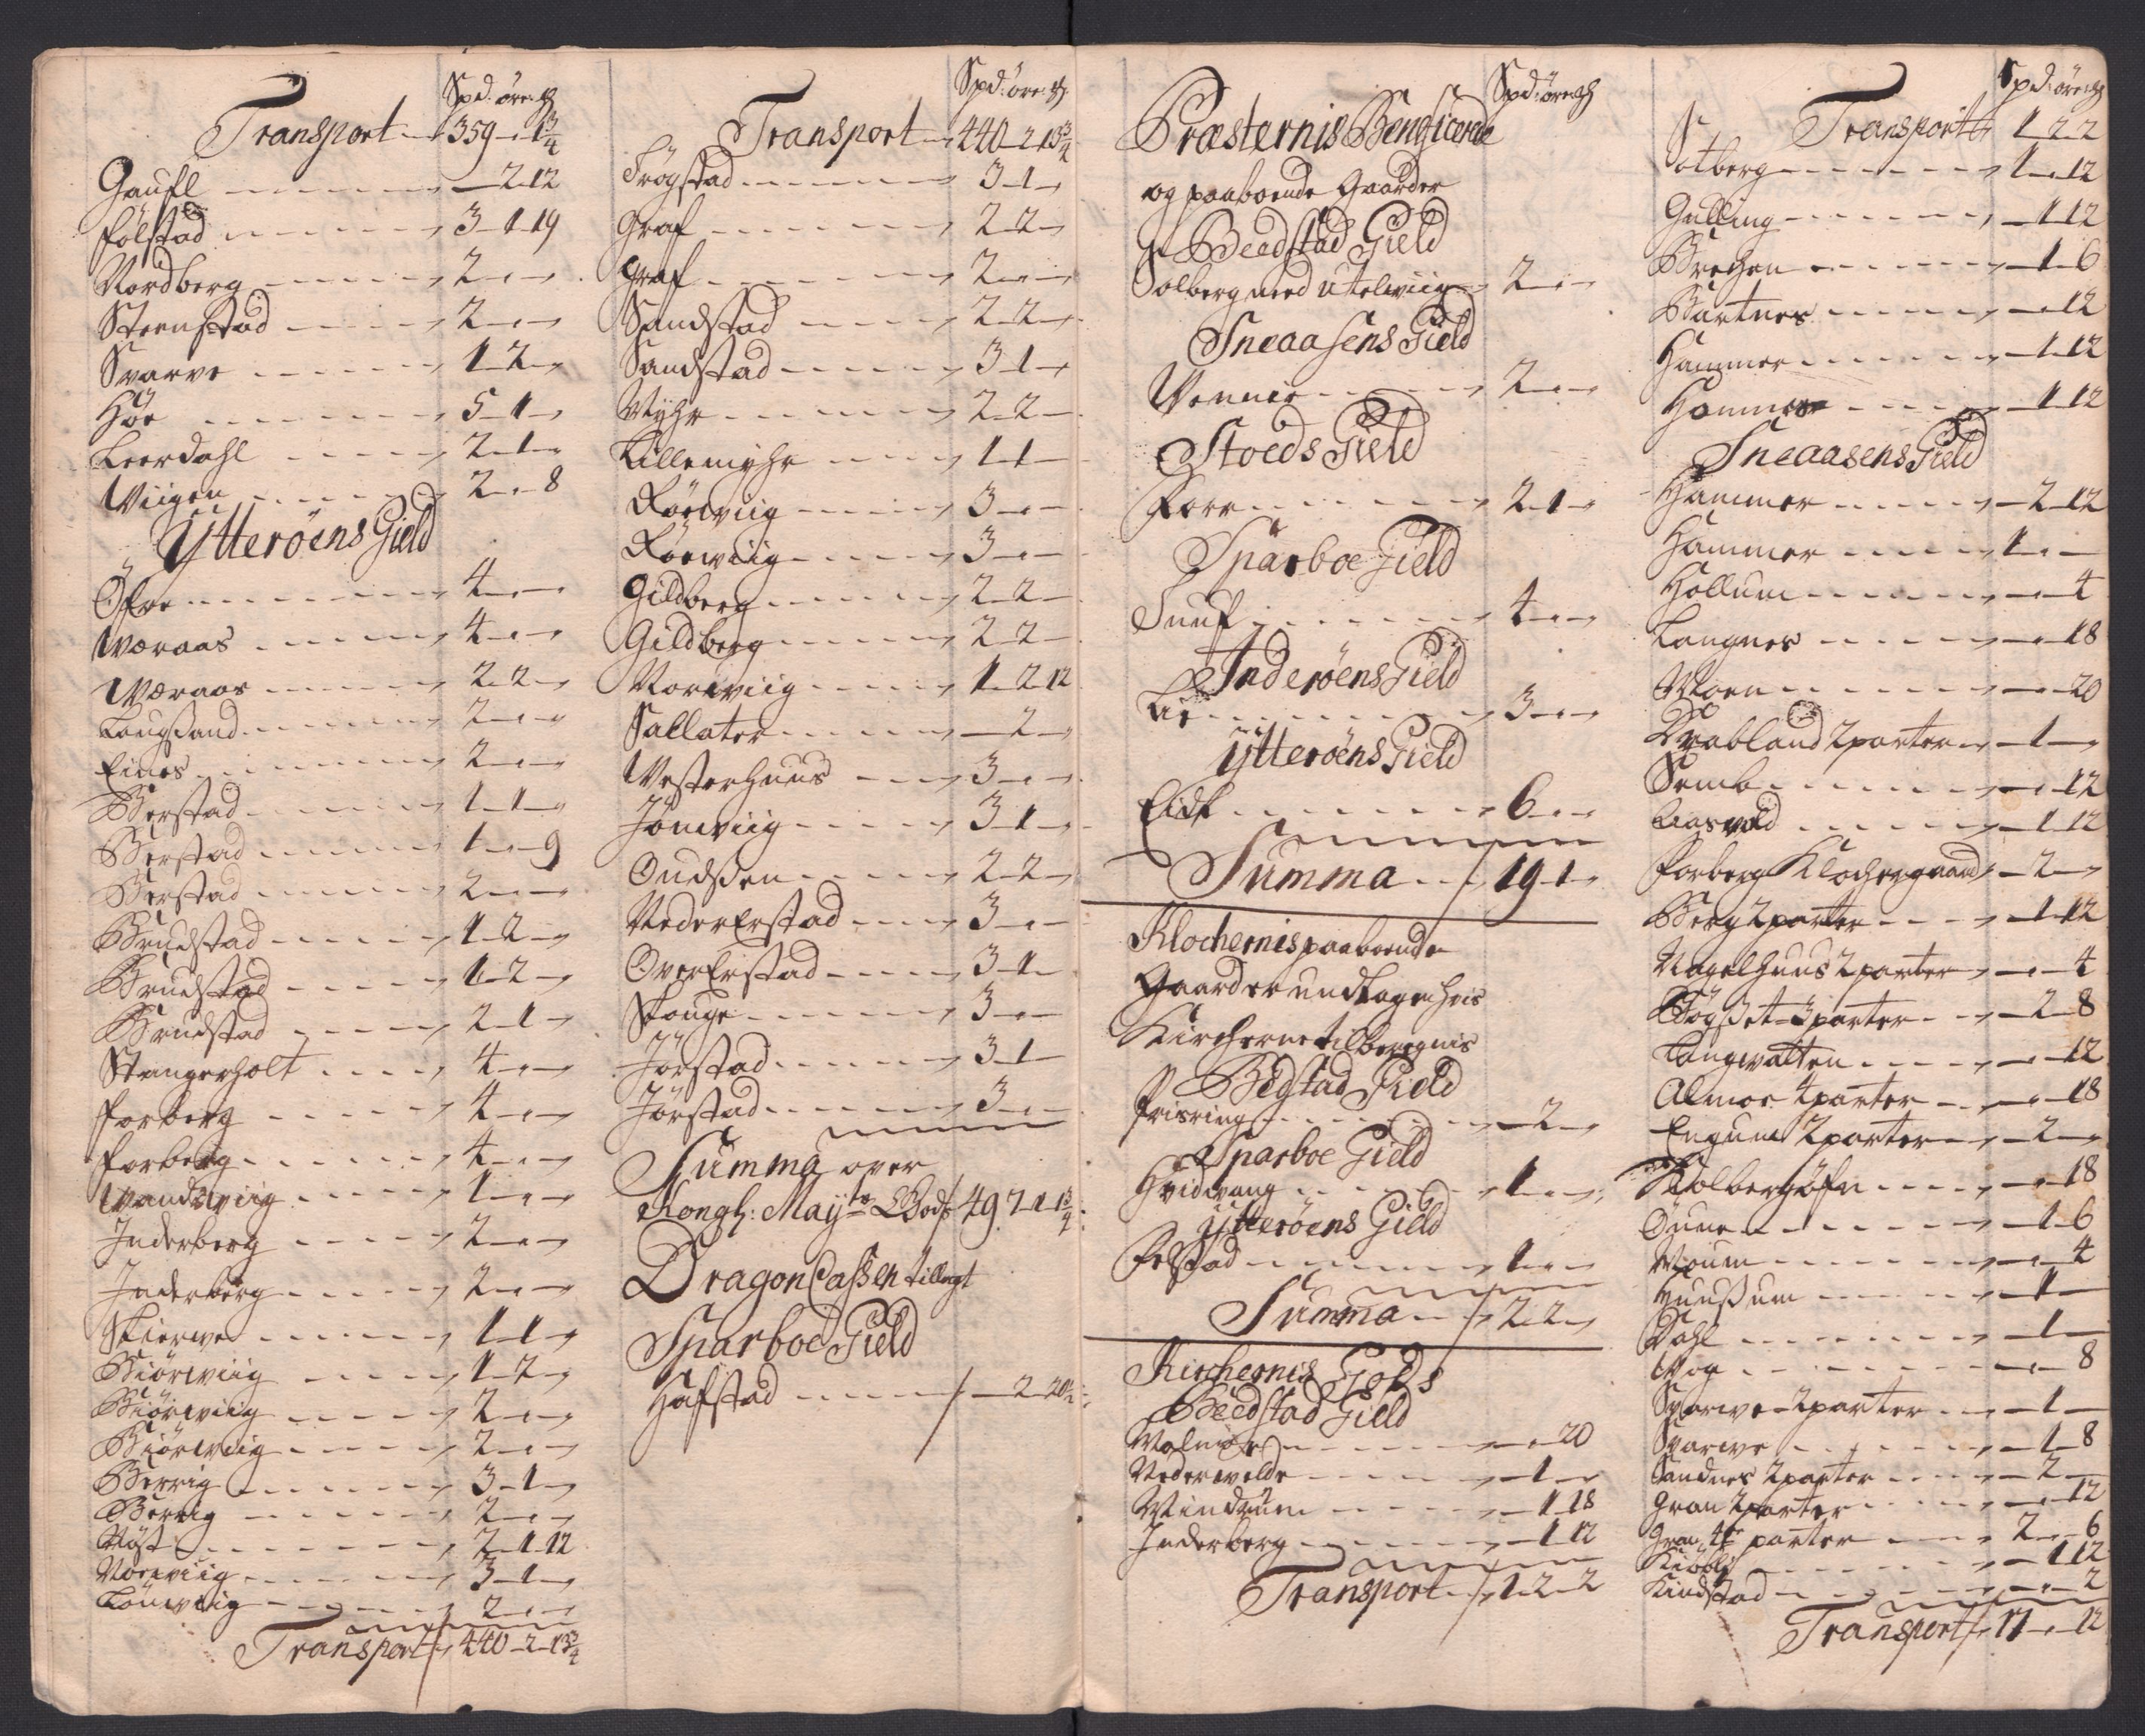 Spd: øre: ℔
Transport 359 - - 1 3/4
Gaufl - 2 12
Følstad 3 1 19
Nordberg 2 - -
Steenstad 2 - -
Svarve 1 2 -
Høe 5 1 -
Leerdahl 2 1 -
Viigen 2 - 8
Ÿtterøens Gield
Øfre 4 - -
Woraas 4 - -
Woraas 2 2 -
Langsand 2 - -
Eines 2 - -
Berstad 1 1 -
Berstad 1 - 9
Berstad 2 - -
Brudstad 1 2 -
Brudstad 1 2 -
Brudstad 2 1 -
Stangerholt 4 - -
Forberg 4 - -
Forberg 4 - -
Wandswiig 1 - -
Inderberg 2 - -
Inderberg 2 - -
Skierwe 1 1 -
Biörwiig 1 2 -
Biörwiig 2 - -
Biörwiig 2 - -
Berrig 3 1 -
Berrig 2 - -
Nöst 2 1 12
Norwiig 3 1 -
Lönwiig 2 - -
Transport 440 - 2 - 13 3/4
Spd: øre: ℔
Transport 440 - 2 13 3/4
Frøgstad 3 1 -
Graf 2 2 -
Graf 2 - -
Sandstad 2 2 -
Sandstad 3 1 -
Myhr 2 2 -
Lillemyhr 1 1 -
Rörwiig 3 - -
Rörwiig 3 - -
Gildberg 2 2 -
Gildberg 2 2 -
Norwiig 1 2 12
Sallater - 2 -
Westerhuus 3 - -
Jönwiig 3 1 -
Oudssen 2 2 -
Neder Erstad 3 - -
Over Erstad 3 1 -
Skauge 3 - -
Jörstad 3 1 -
Jörstad 3 - -
Summa over
Kongl: Mayts Gods 497 - 1 - 13/4
Dragon Cassen tillagt
Sparboe Gield
Hafstad - 2 20½
Spd: øre ℔
Præsternis Beneficerede
og paaboende Gaarder
Beedstad Gield
Solberg med Utelwiig 2 - -
Sneaasens Gield
Wennie 2 - -
Stoeds Gield
Forr 2 1 -
Sparboe Gield
Tuuf 4 - -
Inderøens Gield
Lie 3 - -
Ÿtterøens Gield
Eidt 6 - -
Summa 19 1 -
Klochernis paaboende
Gaarder undtagen hvis
Kircherne tilberegnis
Begstad Gield
Frisring - 2 -
Sparboe Gield
Hvidwang 1 - -
Ÿtterøens Gield
Felstad 1 - -
Summa 2 2 -
Kirchernis Gods
Beedstad Gield
Malmoe - - 20
Nederwelde - 1 -
Windrum - 1 18
Inderberg - 1 12
Transport 1 2 2
Spd: øre ℔
Transport 1 2 2
Solberg 1 - 12
Gulling - 1 12
Brechen - 1 6
Bartnes - - 12
Hammer - 1 12
Hammer - 1 12
Sneaasens Gield
Hammer - 2 12
Hammer 1 - -
Hollum - - 4
Langnes - - 18
Moen - - 20
Krabland 2 parter - 1 -
Semb - - 12
Aasvold - 1 12
Forberg Klochergaard - 2 -
Berg 2 parter - 1 12
Nagelhuus 2 parter - - 4
Bögset 3 parter - 2 8
Langwatten - - 12
Almoe 4 parter - - 18
Engum 2 parter - 2 -
Kolbergöfre - - 18
Oune - 1 6
Moum - - 4
Huusum - 1 -
Dahl - 1 -
Wog - - 8
Svarwe 2 parter - 1 -
Svarwe - 1 8
Sandnes 2 parter - 2 -
Gran 2 parter - - 12
Gran 4de parter 2 - 6
- 1 12
Kindstad - - 2
Transport 17 - 12